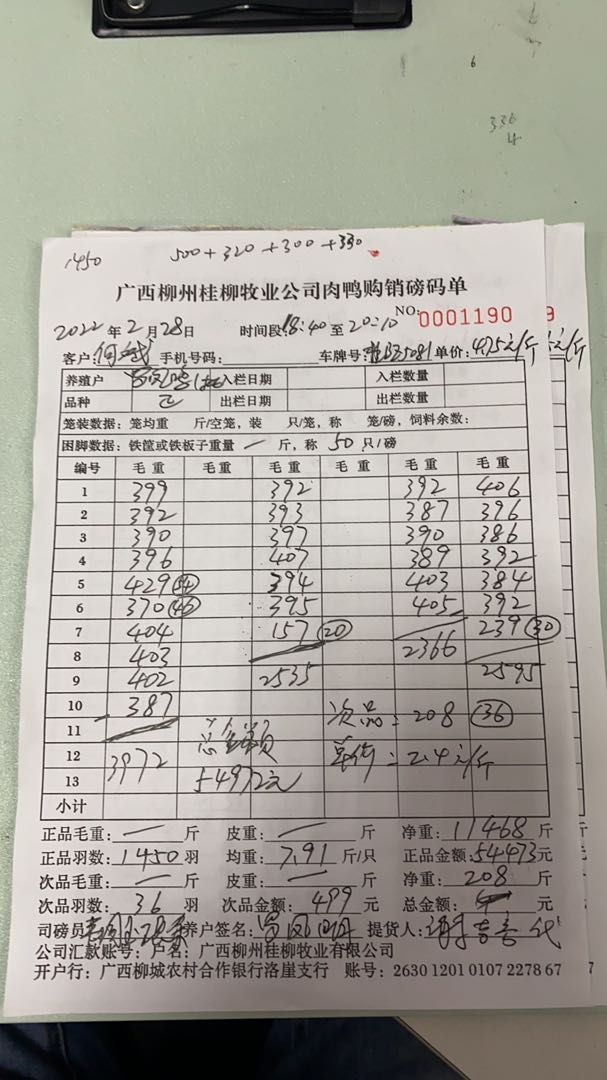 336
4
1450 500+320+300+330
广西柳州桂柳牧业公司肉鸭购销磅码单
2022年2月28日 时间段:18:40至20:10 NO: 0001190 9
客户: 手机号码: 车牌号: 单价:4.75元/斤
养殖户 入栏日期 入栏数量
品种 出栏日期 出栏数量
笼装数据: 笼均重 斤/空笼, 装 只/笼, 称 笼/磅, 饲料余数:
困脚数据: 铁筐或铁板子重量 一 斤, 称 50 只/磅
编号 毛重 毛重 毛重 毛重 毛重 毛重
1 399 392 392 406
2 392 393 387 396
3 390 397 390 386
4 396 407 389 392
5 429 54 394 403 384
6 370 46 395 405 392
7 404 157 20 239 30
8 403 2366
9 402 2535 2595
10 387 次品: 208 36
11 总金额
12 3972 单价: 2.4元/斤
13 54972元
小计
正品毛重: 一 斤 皮重: 一 斤 净重: 11468 斤
正品羽数: 1450 羽 均重: 7.91 斤/只 正品金额: 54473 元
次品毛重: 一 斤 皮重: 一 斤 净重: 208 斤
次品羽数: 36 羽 次品金额: 499 元 总金额: 元
司磅员: 养户签名: 提货人: 代
公司汇款账号: 户名: 广西柳州桂柳牧业有限公司
开户行: 广西柳城农村合作银行洛崖支行 账号: 2630 1201 0107 2278 67 7